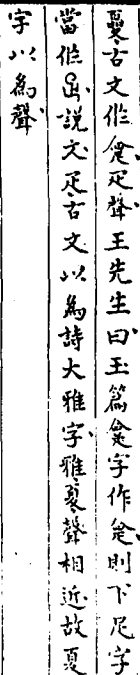 夓古文作𡕾疋聲王先生曰玉篇𡕾字作𡔰則下疋字
當作𤴓說文疋古文以為詩大雅字雅夏聲相近故夏
字以為聲